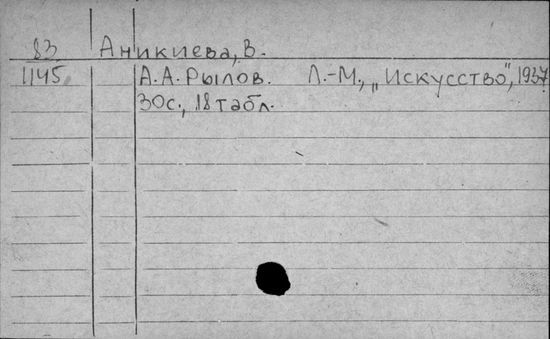 83 Аникиева, В.
1145 А.А. Рылов. Л.-М., „Искусство", 1937
30с., 18 табл.